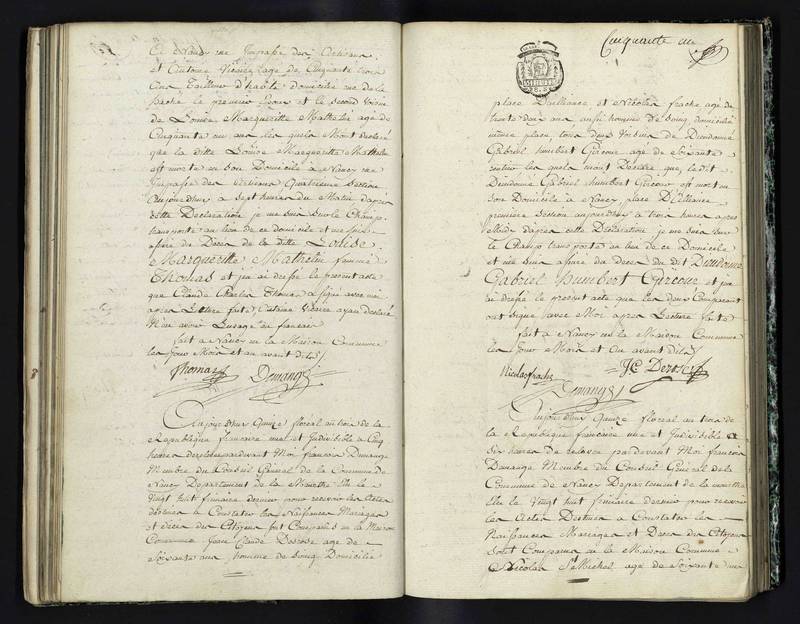 à Nancy rue Impasse des Artisans
et Antoine Vicaire agé de Cinquante trois
ans Tailleur d'habits domicilié rue de la
hache le premier Epoux et le second Voisin
de Louise Margueritte Mathelin agée de
Cinquante un ans les quels M'ont declaré
que la ditte Louise Margueritte Mathelin
est morte en son Domicile à Nancy rue
Impasse des Artisans Quatrieme Section
aujourdhuy a sept heures du Matin, d'apres
cette Declaration je me suis sur le Champ
transporté au lieu de ce domicile et me suis
assuré du Deces de la ditte Louise
Margueritte Mathelin femme
Thomas et j'en ai dressé le present acte
que Claude Charles Thomas a signé avec moi
apres Lecture faite, Antoine Vicaire ayant declaré
N'en avoir L'usage en francois
fait a Nancy en la Maison Commune
les Jour Mois et an avant dits
Thomas Demange
Aujourdhuy Quinze floréal an trois de la
Republique francaise une et Indivisible à Cinq
heures de relevée pardevant Moi francois Demange
Membre du Conseil Général de la Commune de
Nancy Departement de la Meurthe Elu le
Vingt huit frimaire dernier pour recevoir les Actes
destinés a Constater les Naissances Mariages
et décès des Citoyens sont Comparus en la Maison
Commune Jean Claude Derosé agé de
Soixante ans homme de loix Domicilié
Cinquante un
place D'alliance, et Nicolas frache agé de
trente deux ans aussi homme de loix domicilié
même place, tous deux Voisins de Dieudonné
Gabriel humbert Girecour agé de Soixante
les quels m'ont Declaré que le dit
Dieudonné Gabriel humbert Girecour est mort en
son Domicile à Nancy place D'alliance
premiere Section aujourdhuy à trois heures apres
Midy d'apres cette Declaration je me suis sur
le Champ transporté au lieu de ce Domicile
et me suis assuré du deces du dit Dieudonné
Gabriel humbert Girecour et j'en
ai dressé le present acte que les deux Comparant
ont signé avec Moi apres Lecture faite
fait à Nancy en la Maison Commune
les Jour Mois et an avant dits
Nicolas frache JC Derosé
Demange
Aujourdhuy Quinze floréal an trois de
la Republique francaise une et Indivisible a
Six heures de relevée pardevant Moi francois
Demange Membre du Conseil Général de la
Commune de Nancy Departement de la meurthe
Elu le Vingt huit frimaire dernier pour recevoir
les Actes Destinés a Constater les
Naissances Mariages et Deces des Citoyens
Sont Comparus en la Maison Commune
Nicolas St Michel agé de Soixante deux